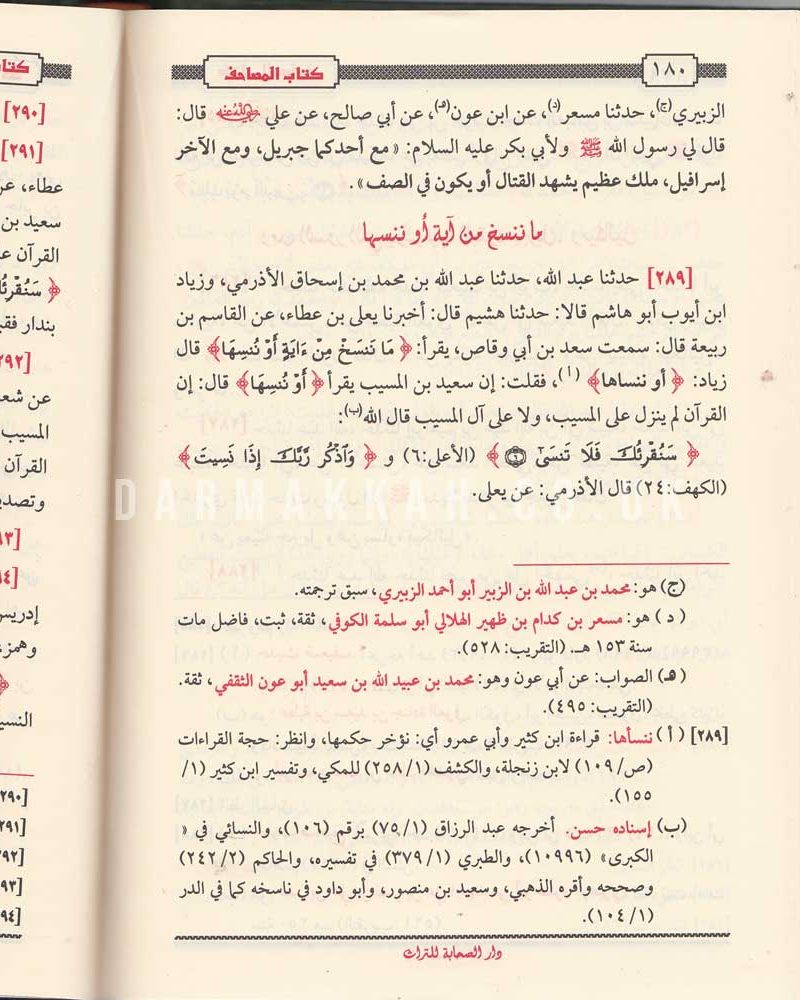 ١٨٠
كتاب المصاحف
الزبيري(ج)، حدثنا مسعر(د)، عن ابن عون(هـ)، عن أبي صالح، عن علي رضي الله عنه قال:
قال لي رسول الله ﷺ ولأبي بكر عليه السلام: «مع أحدكما جبريل، ومع الآخر
إسرافيل، ملك عظيم يشهد القتال أو يكون في الصف».
ما ننسخ من آية أو ننسها
[٢٨٩] حدثنا عبد الله، حدثنا عبد الله بن محمد بن إسحاق الأذرمي، وزياد
ابن أيوب أبو هاشم قالا: حدثنا هشيم قال: أخبرنا يعلى بن عطاء، عن القاسم بن
ربيعة قال: سمعت سعد بن أبي وقاص، يقرأ: ﴿ مَا نَنسَخْ مِنْ ءَايَةٍ أَوْ نُنسِهَا﴾ قال
زياد: ﴿ أو ننساها﴾ (أ)، فقلت: إن سعيد بن المسيب يقرأ ﴿ أَوْ نُنسِهَا﴾ قال: إن
القرآن لم ينزل على المسيب، ولا على آل المسيب قال الله(ب):
﴿ سَنُقْرِئُكَ فَلَا تَنسَىٰٓ ۝٦ ﴾ (الأعلى:٦) و ﴿ وَٱذْكُر رَّبَّكَ إِذَا نَسِيتَ ﴾
(الكهف:٢٤) قال الأذرمي: عن يعلى.
DARMAKKAH.CO.UK
(ج) هو: محمد بن عبد الله بن الزبير أبو أحمد الزبيري، سبق ترجمته.
( د ) هو: مسعر بن كدام بن ظهير الهلالي أبو سلمة الكوفي، ثقة، ثبت، فاضل مات
سنة ١٥٣ هـ. (التقريب: ٥٢٨).
(هـ) الصواب: عن أبي عون وهو: محمد بن عبيد الله بن سعيد أبو عون الثقفي، ثقة.
(التقريب: ٤٩٥).
[٢٨٩] ( أ ) ننسأها: قراءة ابن كثير وأبي عمرو أي: نؤخر حكمها، وانظر: حجة القراءات
(ص/ ١٠٩) لابن زنجلة، والكشف (١/ ٢٥٨) للمكي، وتفسير ابن كثير (١/
١٥٥).
(ب) إسناده حسن. أخرجه عبد الرزاق (١/ ٧٥) برقم (١٠٦)، والنسائي في «
الكبرى» (١٠٩٩٦)، والطبري (١/ ٣٧٩) في تفسيره، والحاكم (٢/ ٢٤٢)
وصححه وأقره الذهبي، وسعيد بن منصور، وأبو داود في ناسخه كما في الدر
(١/ ١٠٤).
دار الصحابة للتراث
[٢٩٠]
[٢٩١]
عطاء، عن
سعيد بن
القرآن
﴿ سَنُقْرِئُكَ
بندار فقـ
عن شعـ
المسيب
القرآن
وتصديـ
إدريس
وهمزـ